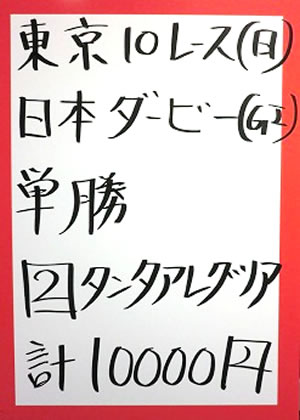 東京10レース(日)
日本ダービー(GI)
単勝
2タンタアレグリア
計10000円